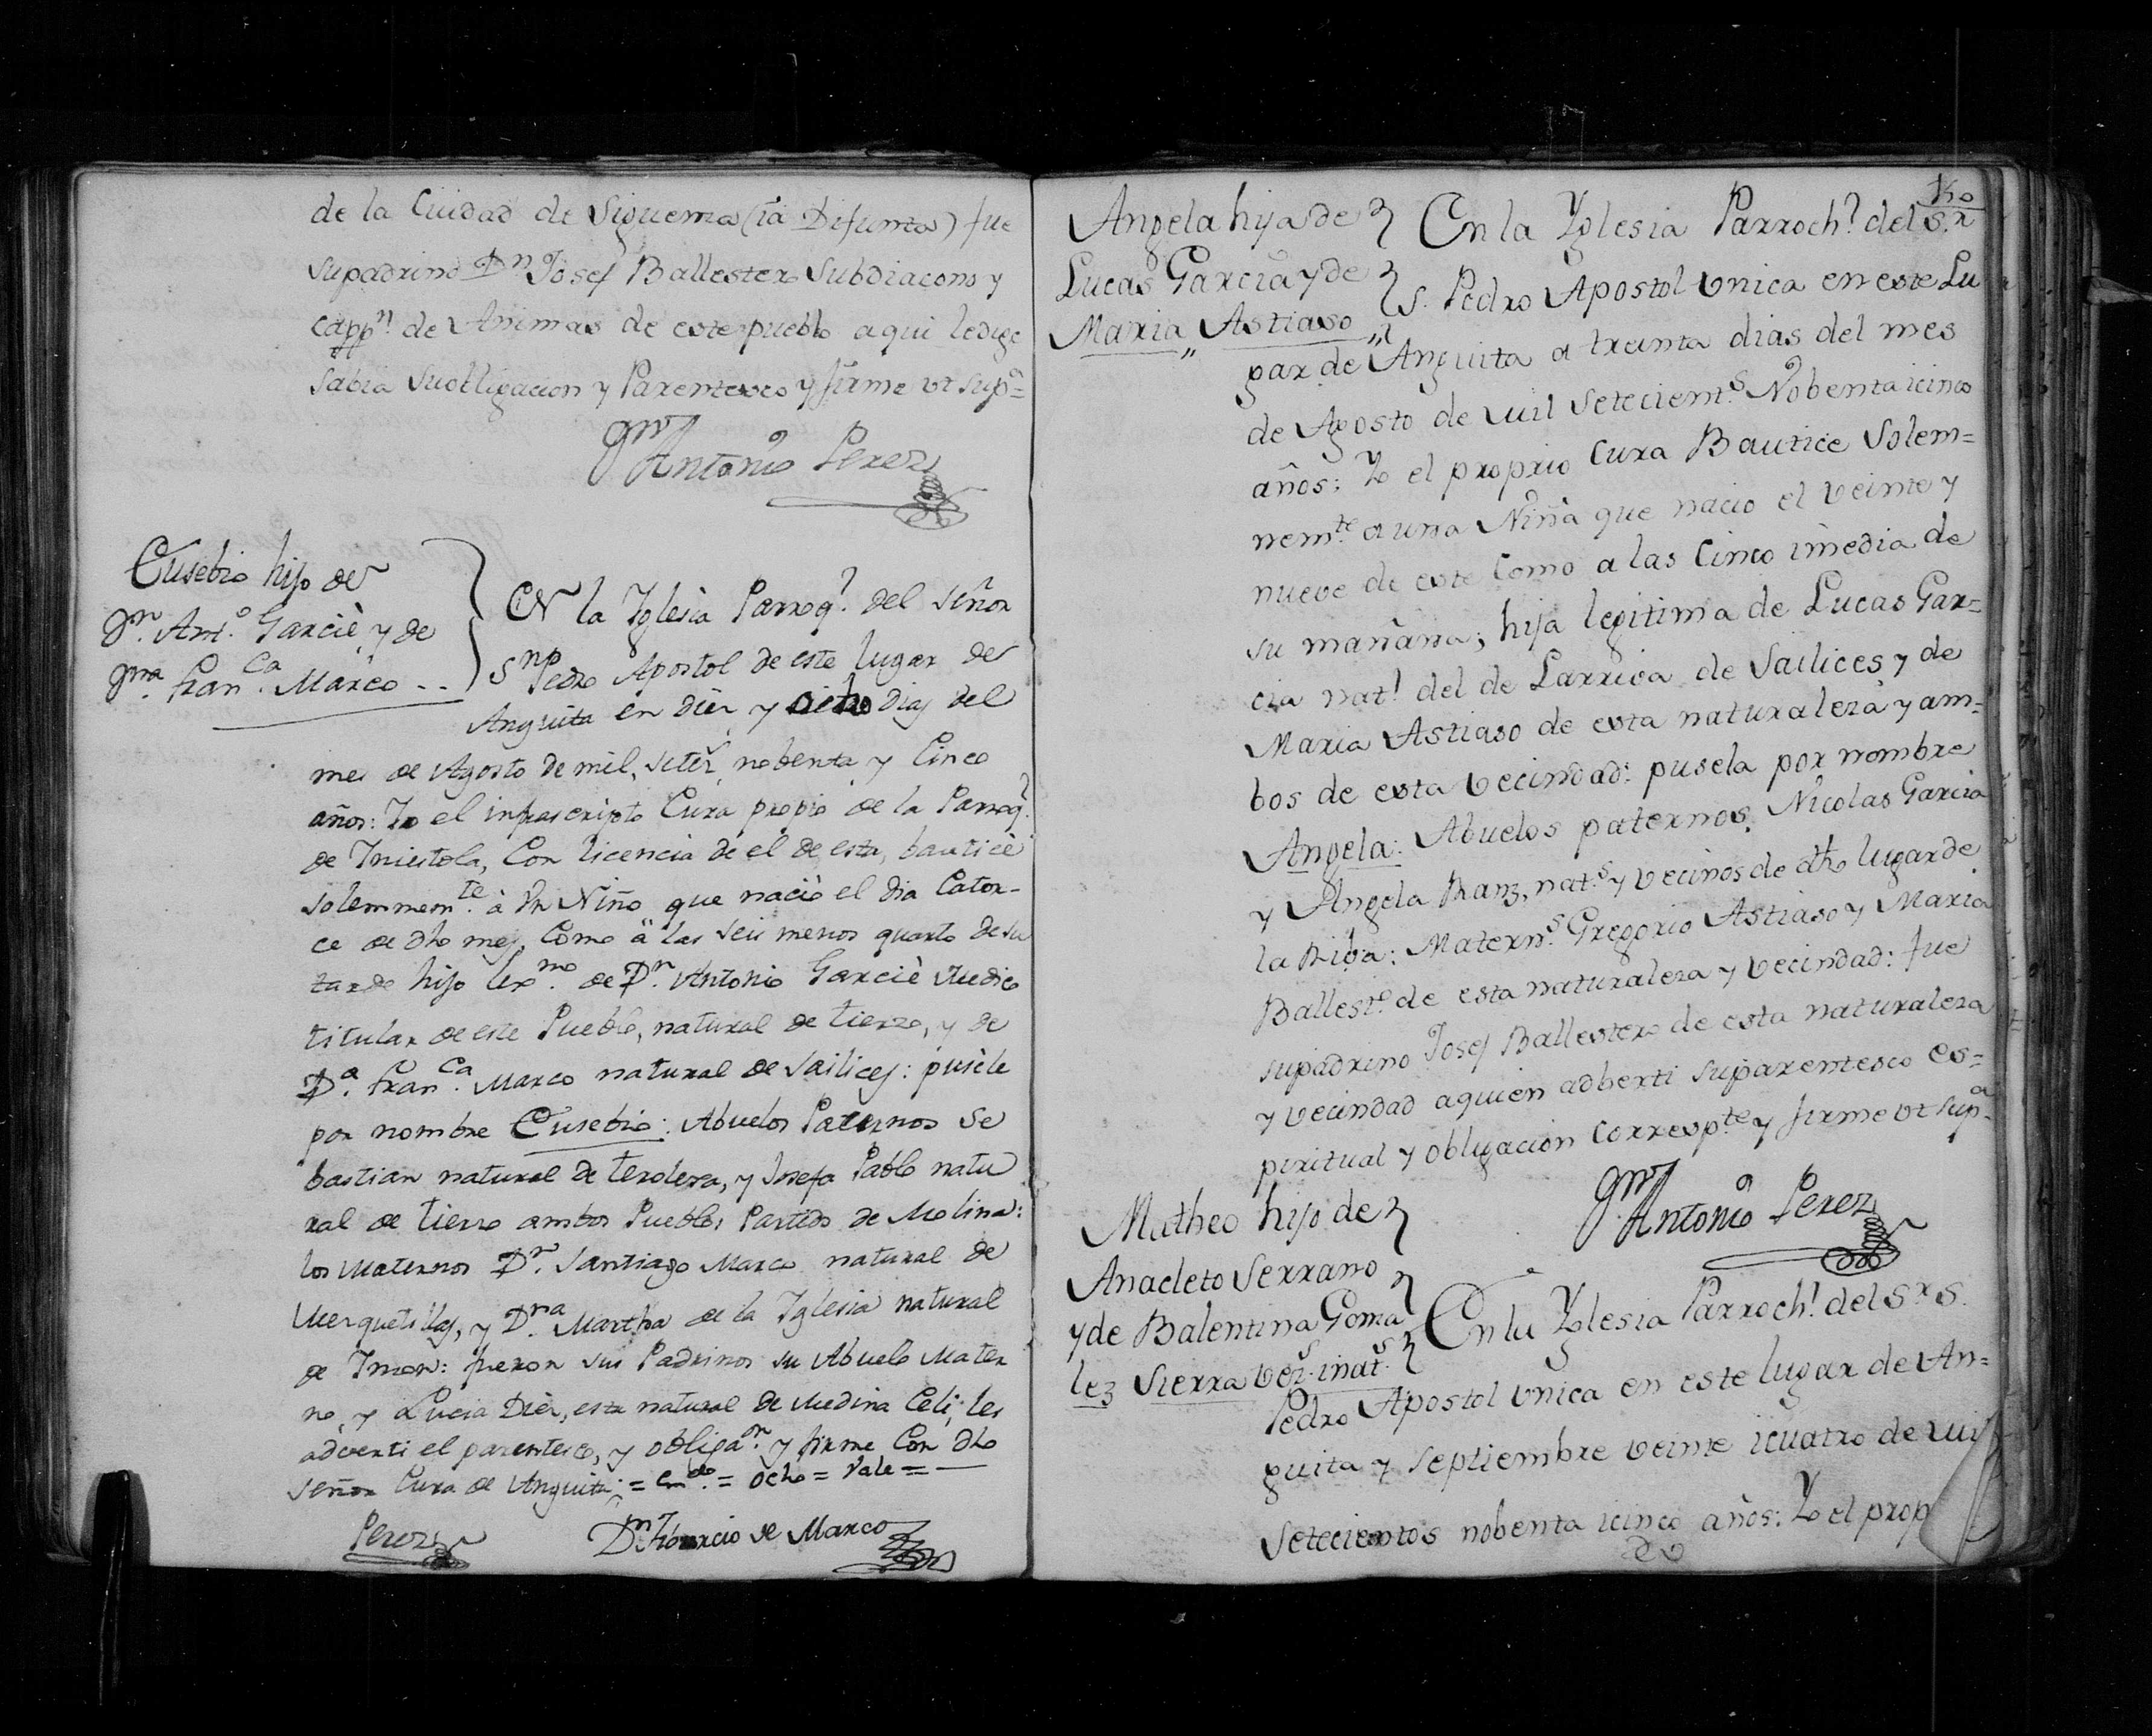 de la Ciudad de Siguenza (ia Difunta) fue
supadrino Dn Josef Ballestero Subdiacono y
Cappn. de Animas de este pueblo aqui ledige
sabia Suobligacion y Parentesco y firme ut supa=
Dn Antonio Perez
Eusebio hijo de
Dn. Anto. Garciè, y de
Dna. Franca. Marco - -
En la Yglesia Parroql. del Señor
Sn Pedro Apostol de este lugar de
Anguita en diez y ocho dias del
mes de Agosto de mil, setes. nobenta y Cinco
años: Yo el infrascripto Cura propio de la Parroql.
de Yniestola, Con licencia de el de esta, bauticè
solemnemte. à Un Niño que naciò el dia Cator-
ce de dho mes, Como à las seis menos quarto de su
tarde hijo lexmo. de Dn. Antonio Garciè Medico
titular de este Pueblo, natural de tierzo, y de
Da. Franca. Marco natural de Sailices: pusèle
por nombre Eusebio: Abuelos Paternos Se
bastian natural de terdeza, y Josefa Pablo natu
ral de tierzo ambos Pueblos Partido de Molina:
los Maternos Dn. Santiago Marco natural de
Uerguetillas, y Dna. Martha de la Yglesia natural
de Ymon: fueron sus Padrinos su Abuelo Mater
no, y Lucia Dièz, esta natural de Medina Celi; les
adverti el parentesco, y obligaon. y firme Con dho
señor Cura de Anguita; = Emdo. = ocho = Vale = —
Perez
Dn. de Marco
Angela hija de
Lucas Garcia y de
Maria Astiaso
En la Yglesia Parrochl. del Sr.
S. Pedro Apostol Unica en este Lu
gar de Anguita a treinta dias del mes
de Agosto de mil setecients. Nobenta icinco
años: Yo el proprio Cura Bautice Solem=
nemte. a una Niña que nacio el veinte y
nueve de este Como a las Cinco imedia de
su mañana; hija legitima de Lucas Gar=
cia natl. del de Larriva de Sailices y de
Maria Astiaso de esta naturaleza y am=
bos de esta vecindad: pusela por nombre
Angela: Abuelos paternos, Nicolas Garcia
y Angela Ranz, nats. y vecinos de dho lugar de
la Riba: Materns. Gregorio Astiaso y Maria
Ballesto. de esta naturaleza y vecindad: fue
supadrino Josef Ballestero de esta naturaleza
y vecindad aquien adberti suparentesco es=
piritual y obligacion Correspte. y firme ut supa.
Dn. Antonio Perez
Matheo hijo de
Anacleto Serrano
yde Balentina Gonza
lez Sierra Vezs. inats.
En la Yglesia Parrochl. del Sr. S.
Pedro Apostol Unica en este lugar de An=
guita y Septiembre veinte icuatro de mil
Setecientos nobenta icinco años: Yo el prop